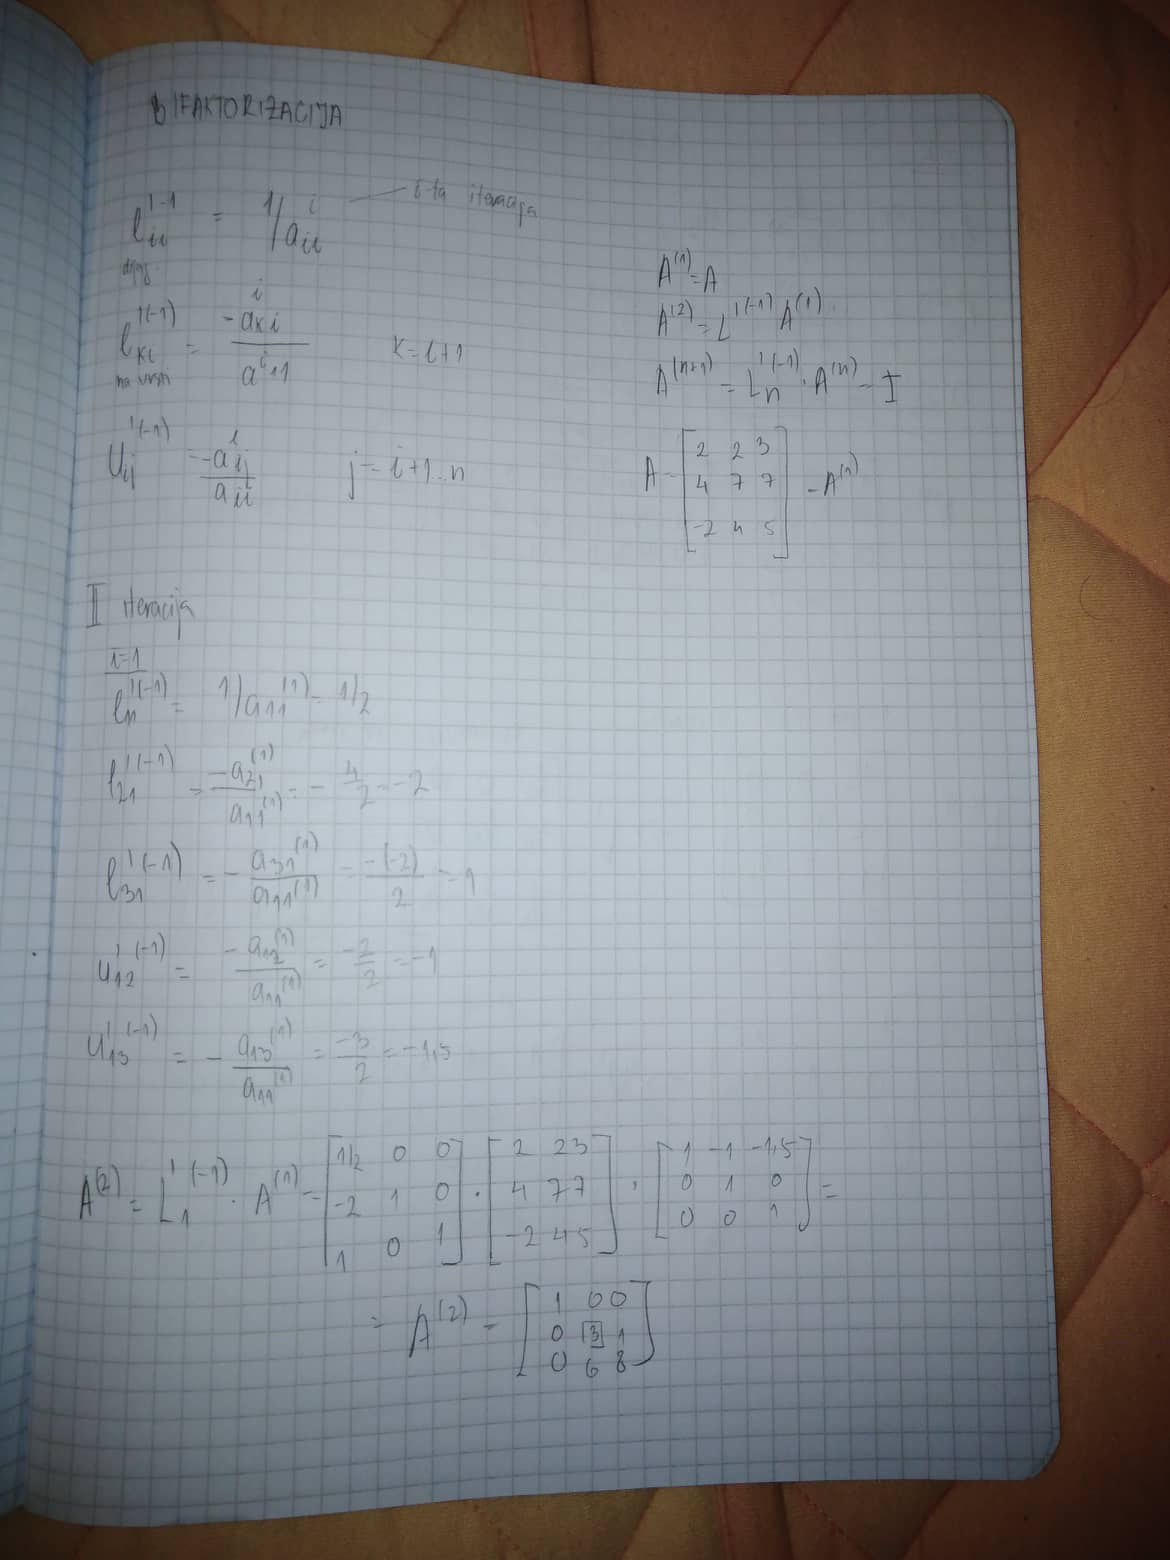 BIFAKTORIZACIJA
l_ii^1-1 = 1/a_ii^i — i-ta iteracija
dijag.
l_ki^1(-1) = -a_ki^i / a^i_11 K=i+1
u_ij^1(-1) = -a_ij^i / a_ii j=i+1..n
A^(1)=A
A^(2)=L^1(-1) A^(1)
A^(n+1) = L_n^1(-1)·A^(n) - I
A-[2 2 3
4 7 7
-2 4 5] -A^(1)
II iteracija
i=1
l_11^1(-1) = 1/a_11^(1) = 1/2
l_21^1(-1) = -a_21^(1) / a_11^(1) = - 4/2 = -2
l_31^1(-1) = - a_31^(1) / a_11^(1) = -(-2)/2 = 1
u_12^1(-1) = -a_12^(1) / a_11^(1) = -2/2 = -1
u_13^1(-1) = - a_13^(1) / a_11^(1) = -3/2 = -1,5
A^(2) = L_1^1(-1) · A^(1) - [1/2 0 0
-2 1 0
1 0 1] · [2 2 3
4 7 7
-2 4 5] · [1 -1 -1,5
0 1 0
0 0 1] =
= A^(2) - [1 0 0
0 3 1
0 6 8]